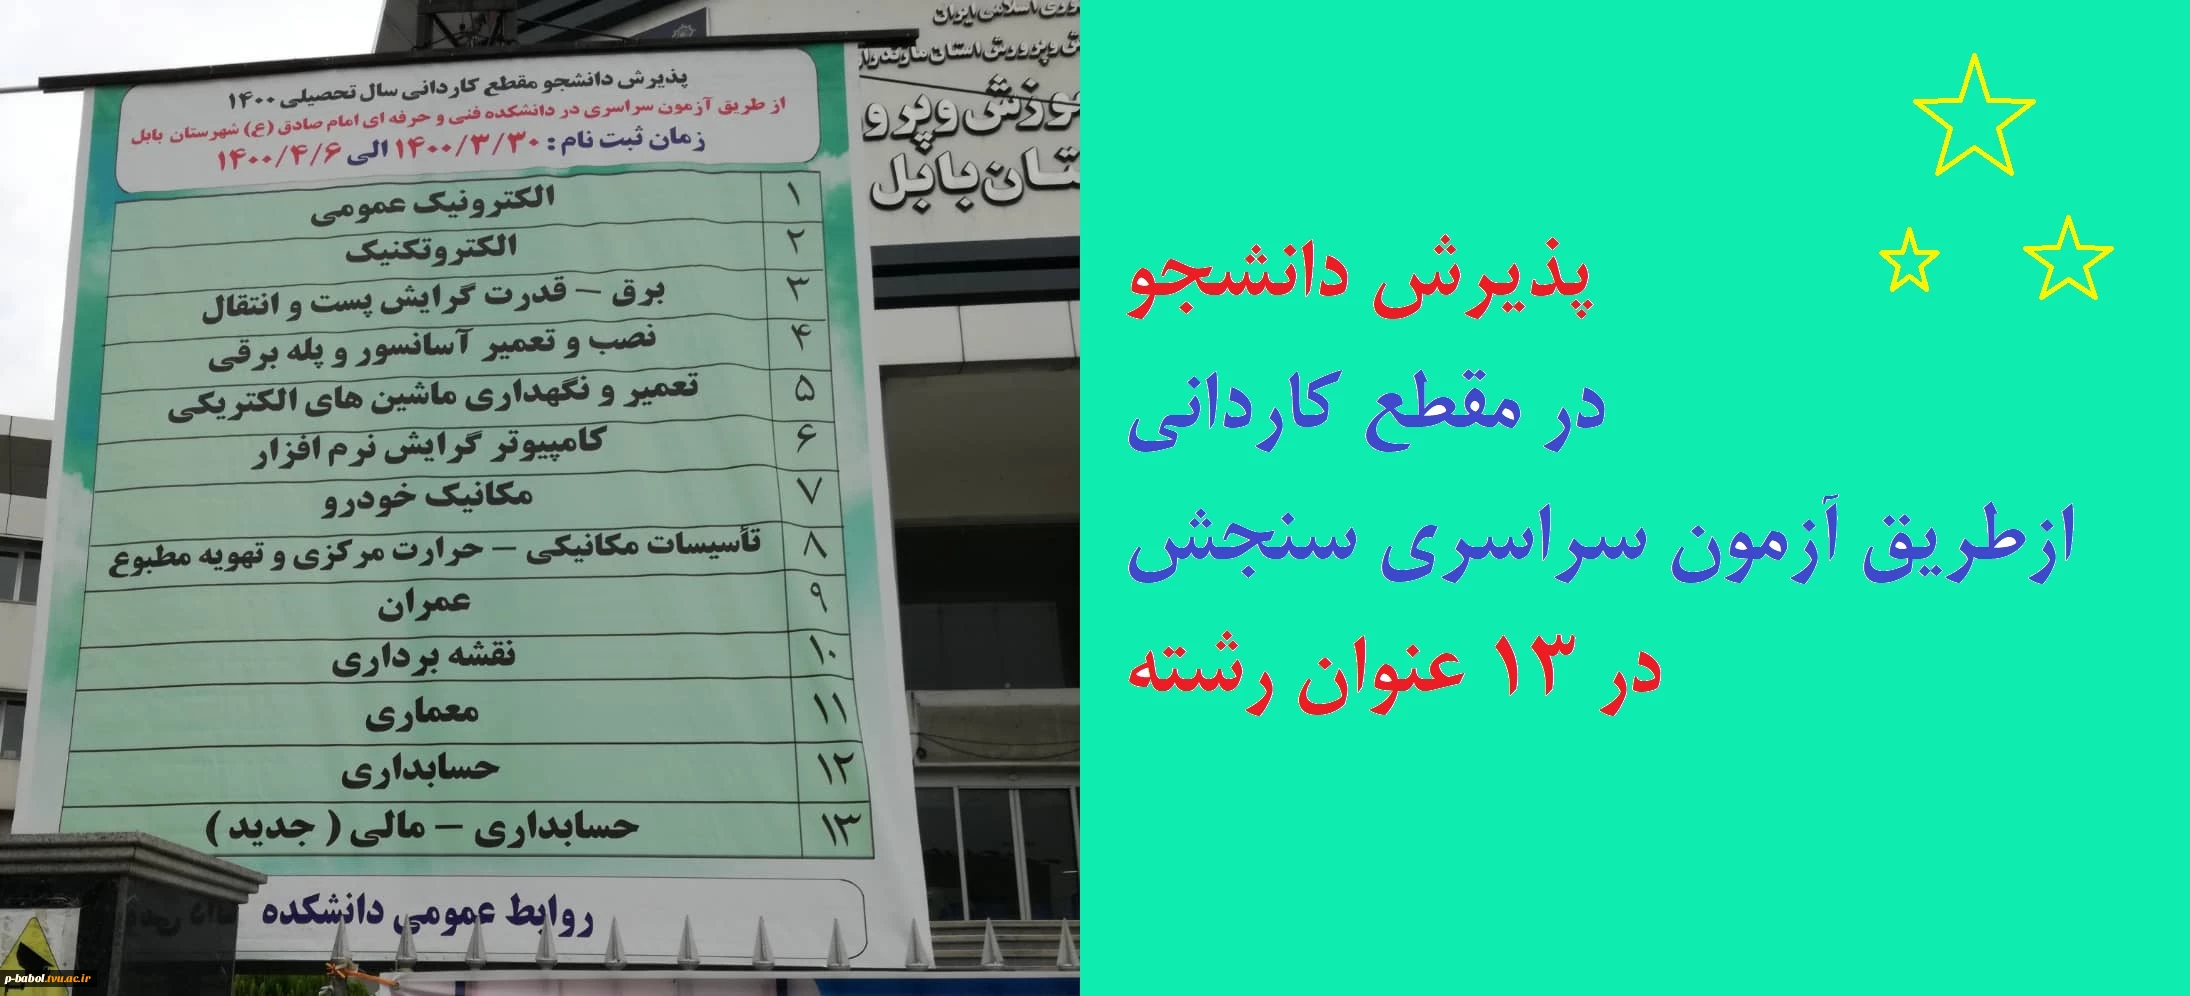 پذیرش دانشجو مقطع کاردانی سال تحصیلی ۱۴۰۰
از طریق آزمون سراسری در دانشکده فنی و حرفه ای امام صادق (ع) شهرستان بابل
زمان ثبت نام : ۱۴۰۰/۳/۳۰ الی ۱۴۰۰/۴/۶
۱ الکترونیک عمومی
۲ الکتروتکنیک
۳ برق – قدرت گرایش پست و انتقال
۴ نصب و تعمیر آسانسور و پله برقی
۵ تعمیر و نگهداری ماشین های الکتریکی
۶ کامپیوتر گرایش نرم افزار
۷ مکانیک خودرو
۸ تأسیسات مکانیکی – حرارت مرکزی و تهویه مطبوع
۹ عمران
۱۰ نقشه برداری
۱۱ معماری
۱۲ حسابداری
۱۳ حسابداری – مالی ( جدید )
روابط عمومی دانشکده
اسلامی ایران
وپرورش استان مازندران
موزش وپرو
ستان بابل
p-babol.tvu.ac.ir
پذیرش دانشجو
در مقطع کاردانی
ازطریق آزمون سراسری سنجش
در ۱۳ عنوان رشته